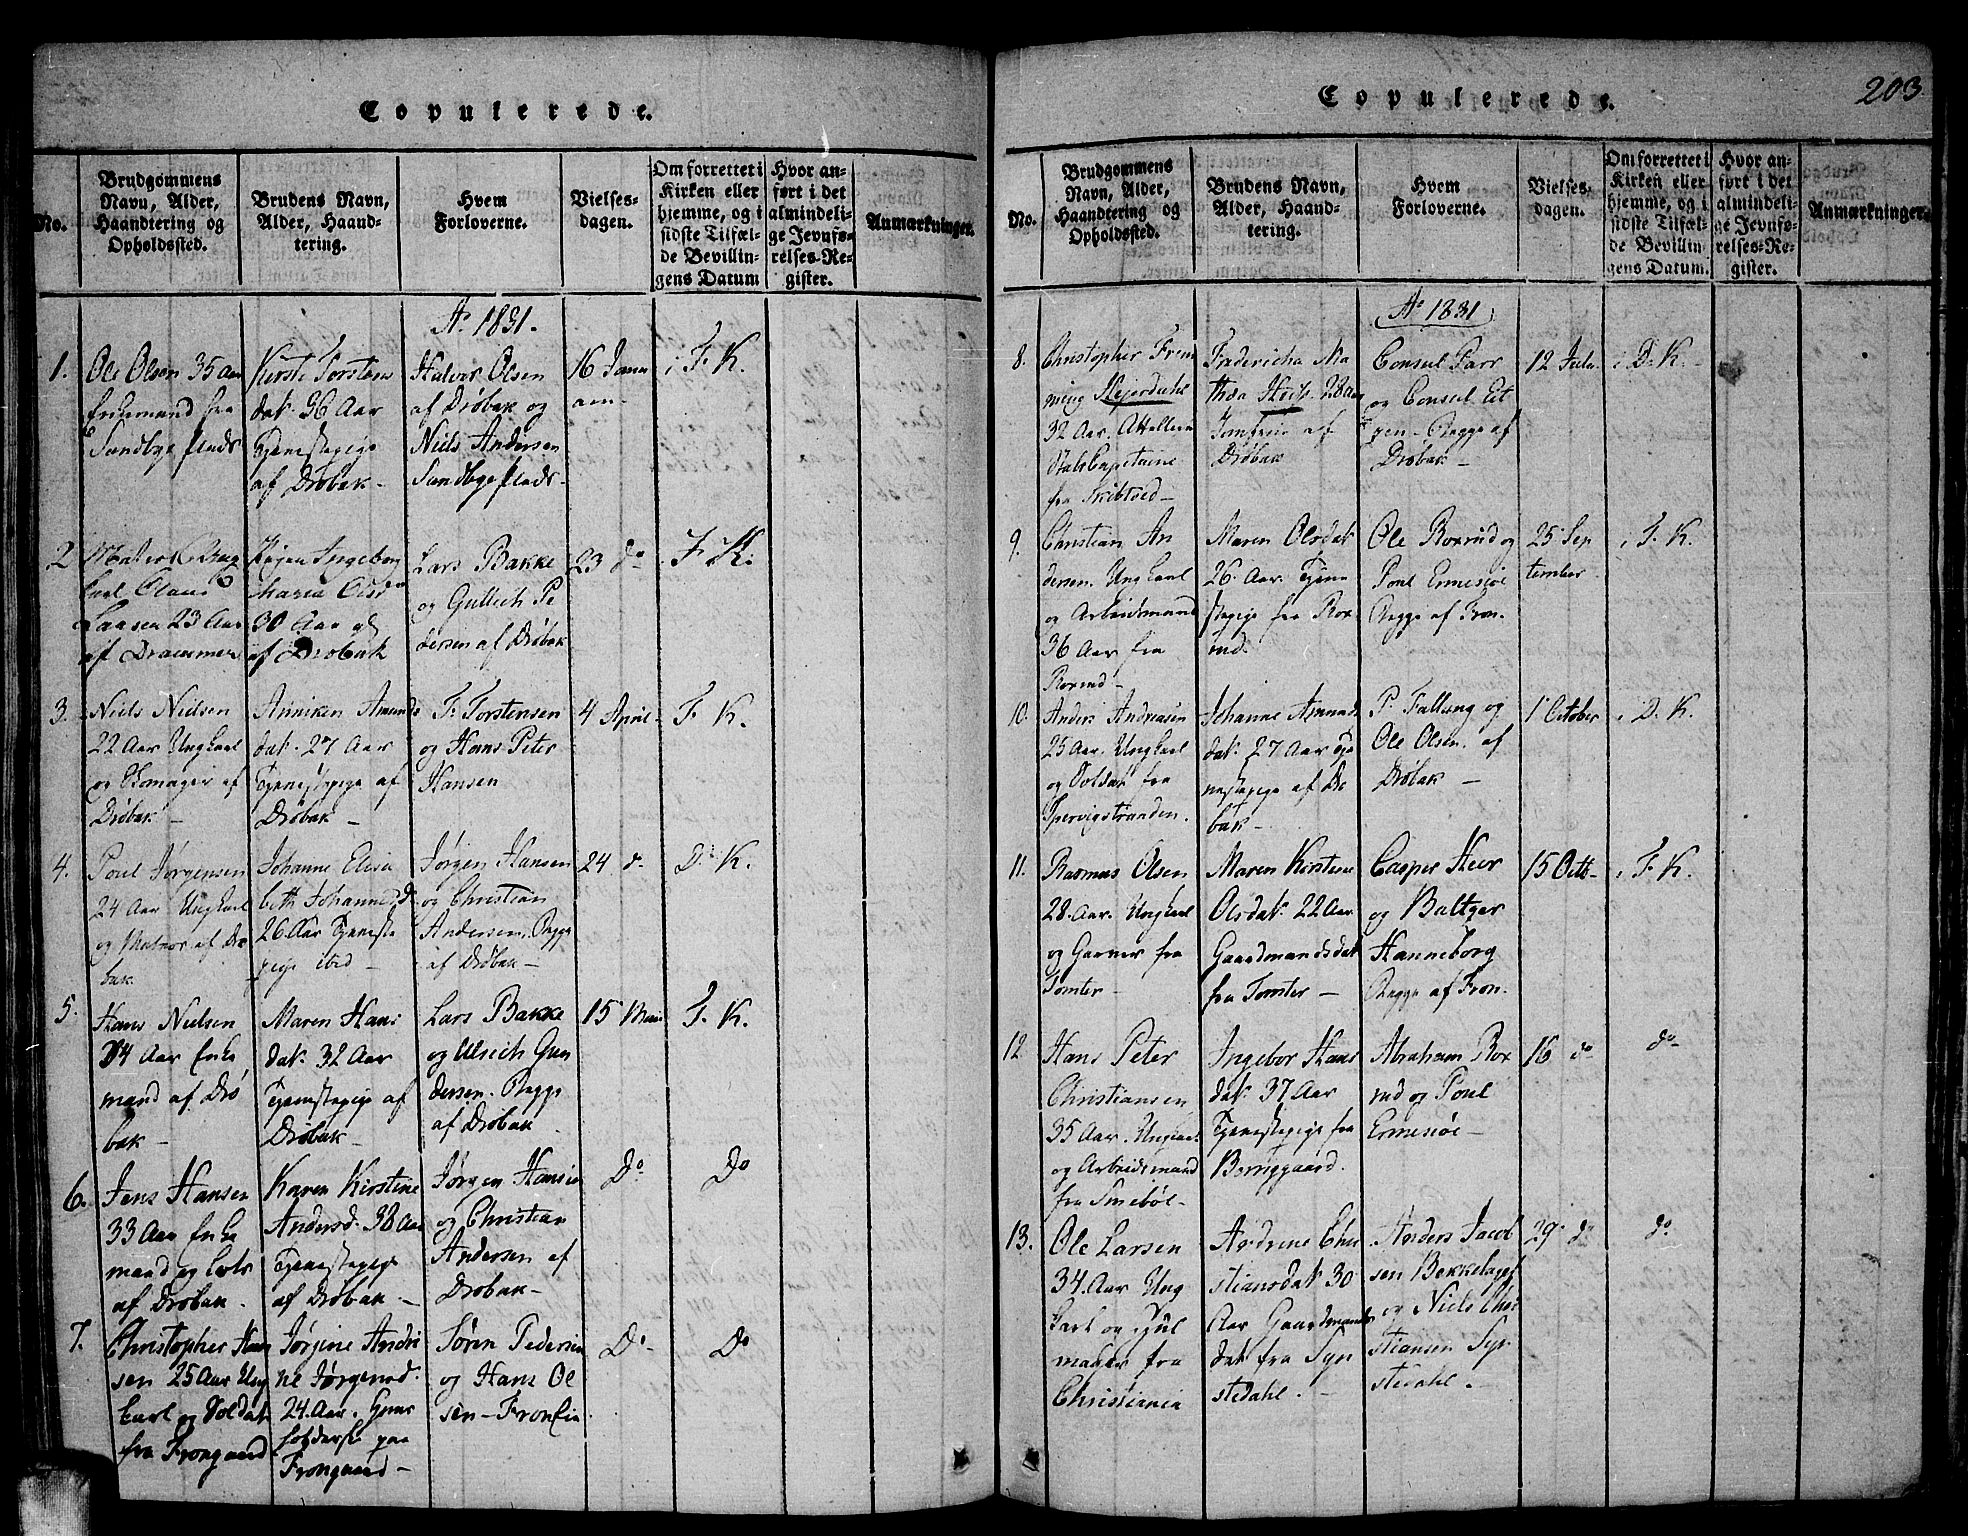 Copulerede.
No.
Brudgommens
Navn, Alder,
Haandtering og
Opholdssted.
Brudens Navn,
Alder, Haand-
tering.
Hvem
Forloverne.
Vielses-
dagen.
Om forrettet i
Kirken eller
hjemme, og i
sidste Tilfæl-
de Bevillin-
gens Datum
Hvor an-
ført i det
almindeli-
ge Jevnfø-
relses-Re-
gister.
Anmærkninger.
Ao 1831.
1.
Ole Olsen 35 Aar
Enkemand fra
Sundbye plads
Kirste Torstens
dat. 36 Aar
Tjenestepige
af Drøbak -
Halvor Olsen
af Drøbak og
Niels Andersen
Sundbyeplads -
16 Janu
arii -
i F. K.
2
Matros Ung
karl Olaus
Laasen 23 Aar
af Drammen
Ingeborg
Maria Olsd
30 Aar
af Drøbak
Lars Bakke
og Gullich Pe
dersen af Drøbak
23 do
F. K.
3.
Niels Nielsen
22 Aar Ungkarl
og Skomager af
Drøbak -
Anniken Amunds
dat. 27 Aar
Tjenestepige af
Drøbak -
T. Torstensen
og Hans Peter
Hansen
4 April -
F. K.
4.
Poul Jørgensen
24 Aar Ungkarl
og Matros af Drø
bak.
Johanne Elisa
beth Johannesd
26 Aar Tjeneste
pige ibid -
Jørgen Hansen
og Christian
Andersen, Begge
af Drøbak -
24 do
D. K.
5.
Hans Nielsen
34 Aar Enke
mand af Drø
bak -
Maren Hans
dat. 32 Aar
Tjenestepige af
Drøbak -
Lars Bakke
og Ulrich Gun
dersen. Begge
af Drøbak
15 Maii
F. K.
6.
Jens Hansen
33 Aar Enke
mand og Lods
af Drøbak.
Karen Kirstine
Andersd. 38 Aar
Tjenestepige
af Drøbak -
Jørgen Hansen
og Christian
Andersen af
Drøbak -
Do
Do
7.
Christopher Han
sen 25 Aar Ung
karl og Soldat
fra Frongaard
Jørgine Andri
ne Jørgensd.
24. Aar. Huus
holderske paa
Frongaard -
Søren Pedersen
og Hans Ol
sen - Fron
Do
Do
Copulerede.
203
No.
Brudgommens
Navn, Alder,
Haandtering og
Opholdssted.
Brudens Navn,
Alder, Haand-
tering.
Hvem
Forloverne.
Vielses-
dagen.
Om forrettet i
Kirken eller
hjemme, og i
sidste Tilfæl-
de Bevillin-
gens Datum.
Hvor an-
ført i det
almindeli-
ge Jevnfø-
relses-Re-
gister.
Anmærkninger.
Ao 1831
8.
Christopher Frem
ming Hejerdahl
32 Aar. Artilleri
Stabscapitaine
fra Skibtved -
Fredericha Ma
thea 28 Aar
Jomfrue af
Drøbak
Consul Parr
og Consul Eit
zen - Begge af
Drøbak -
12 Julii
i D. K. -
9.
Christian An
dersen. Ungkarl
og Arbeidsmand
36 Aar fra
Roxrud -
Maren Olsdat
26. Aar. Tjene
stepige fra Rox
rud.
Ole Roxrud og
Poul Ermesiøe
Begge af Fron.
25 Sep
tember
i F. K.
10.
Anders Andreasen
25 Aar. Ungkarl
og Soldat fra
Spervigstranden.
Johanne Amunds
dat. 27 Aar Tje
nestepige af Drø
bak -
P. Fallung og
Ole Olsen. af
Drøbak -
1 October
i D. K.
11.
Rasmus Olsen
28. Aar. Ungkarl
og Garver fra
Tomter -
Maren Kirstine
Olsdat. 22 Aar
Gaardmandsdat
fra Tomter -
Casper Heer
og Baltzer
Hanneborg
Begge af Fron.
15 Octb -
i F. K.
12.
Hans Peter
Christiansen
35 Aar. Ungkarl
og Arbeidsmand
fra Smebøl -
Ingebor Hans
dat. 37 Aar
Tjenestepige fra
Berrggaard.
Abraham Rox
rud og Poul
Ermesiøe -
16 do
do
13.
Ole Larsen
34. Aar Ung
karl og Hjul
mager fra
Christiania
Andrine Chri
stiansdat 30
Aar Gaardmands
dat fra Syn
stedahl. -
Anders Jacob
sen Bekkelaget
og Niels Chri
stiansen Syn
stedahl.
29 do
do